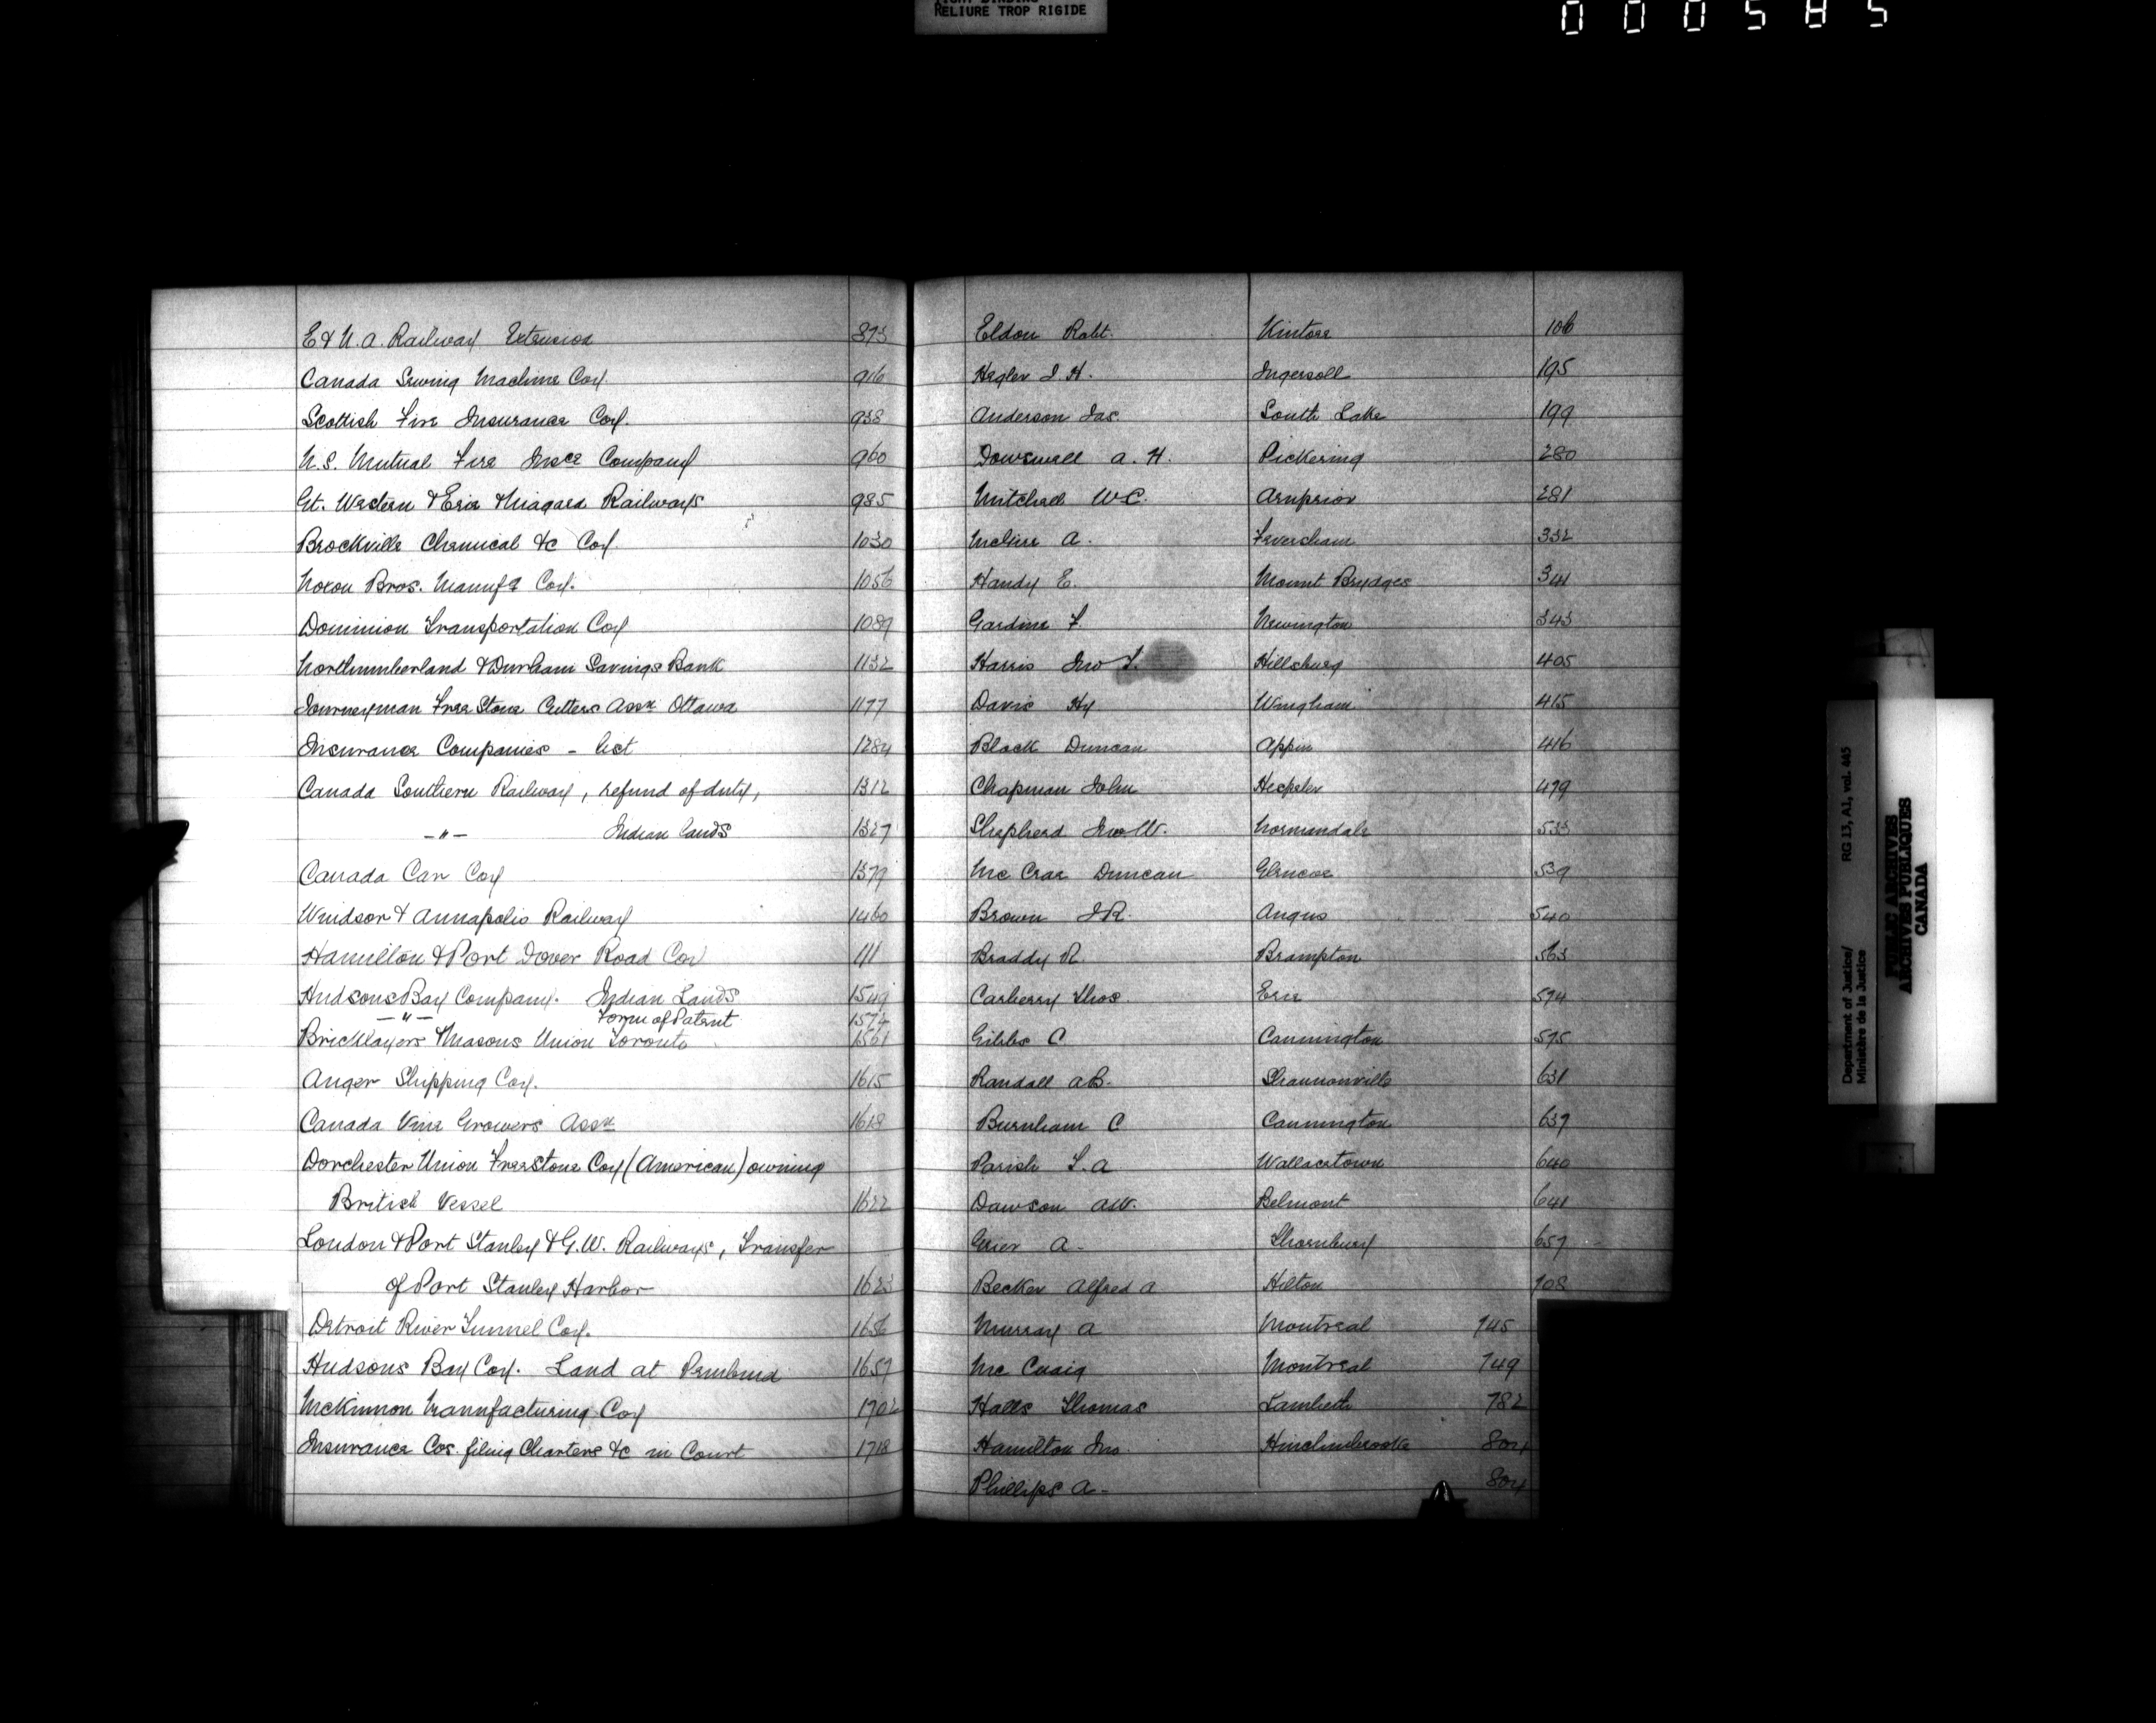 TIGHT BINDING
RELIURE TROP RIGIDE
000585
E & N.A. Railway Extension 873
Canada Sewing Machine Coy. 916
Scottish Fire Insurance Coy. 938
N.S. Mutual Fire Insce Company 960
Gt. Western & Erie & Niagara Railways 985
Brockville Chemical &c Coy. 1030
Noxon Bros. Manufg Coy. 1056
Dominion Transportation Coy 1089
Northumberland & Durham Savings Bank 1132
Journeyman Free Stone Cutters Assn Ottawa 1177
Insurance Companies - Act 1284
Canada Southern Railway, refund of duty, 1312
-"- Indian Lands 1327
Canada Car Coy 1379
Windsor & Annapolis Railway 1460
Hamilton & Port Dover Road Coy 111
Hudsons Bay Company. Indian Lands 1549
-"- Form of Patent 1572
Bricklayers & Masons Union Toronto 1561
Anger Shipping Coy. 1615
Canada Vine Growers Assn 1618
Dorchester Union Freestone Coy (American) owning
British Vessel 1622
London & Port Stanley & G.W. Railways, Transfer
of Port Stanley Harbor 1623
Detroit River Tunnel Coy. 1656
Hudsons Bay Coy. Land at Pembina 1657
McKinnon Manufacturing Coy 1702
Insurance Cos. filing Charters &c in Court 1718
Eldon Robt. Kintore 106
Hegler J.H. Ingersoll 195
Anderson Jas South Lake 199
Dowswell A.H. Pickering 280
Mitchell W.C. Arnprior 281
McClure A. Feversham 332
Handy E. Mount Brydges 341
Gardine F. Newington 343
Harris Jno T. Hillsburg 405
Davis Hy Wingham 415
Black Duncan Appin 416
Chapman John Hespeler 479
Shepherd Jno W. Normandale 533
McCrae Duncan Glencoe 539
Brown J.R. Angus 540
Braddy R. Brampton 563
Carberry Thos. Erie 574
Gibbs C Cannington 575
Randall A.B. Shannonville 631
Burnham C Cannington 637
Parish T.A Wallacetown 640
Dawson A.W. Belmont 641
Grier A- Thornbury 657
Becker Alfred A Hilton 708
Murray A Montreal 745
McCuaig Montreal 749
Halls Thomas Lambeth 782
Hamilton Jno. Hinchinbrooke 804
Phillips A- 804
Department of Justice/ RG 13, A1, vol. 445
Ministère de la Justice
PUBLIC ARCHIVES
ARCHIVES PUBLIQUES
CANADA